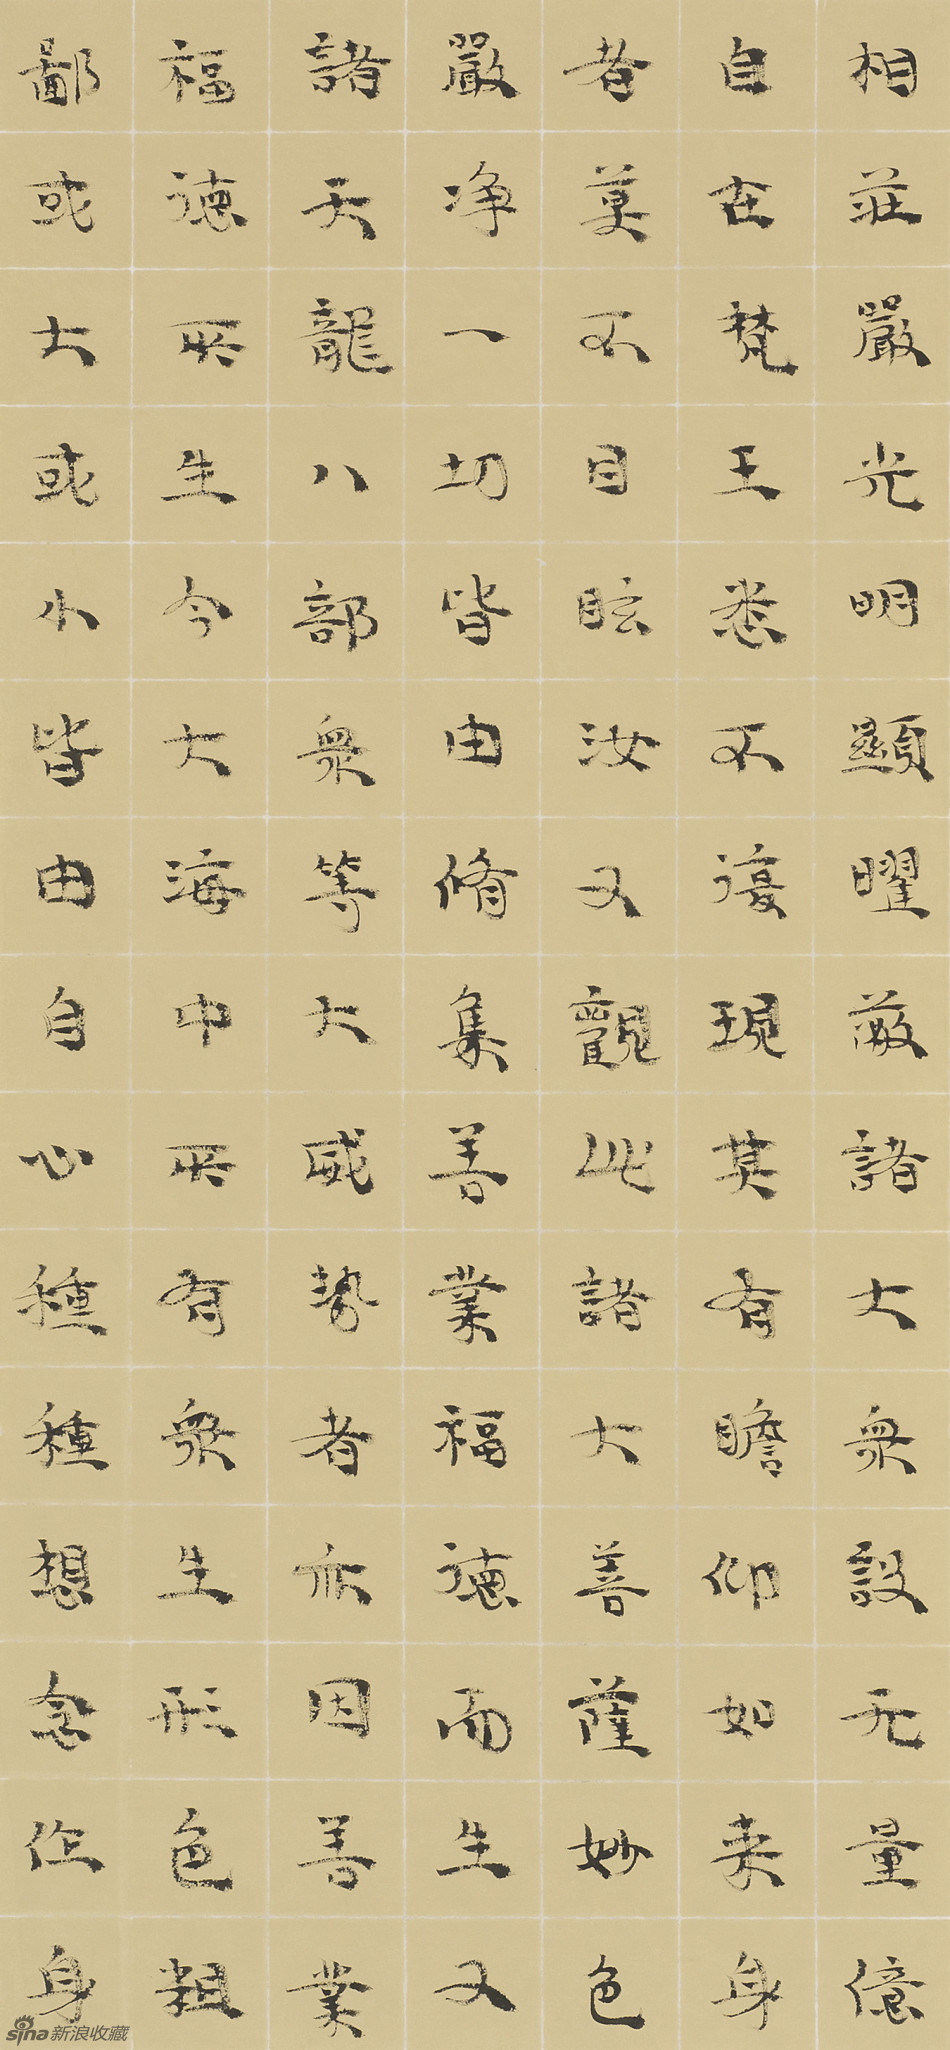 相莊嚴光明顯曜蔽諸大衆設无量億
自在梵王悉不復現其有瞻仰如来身
者莫不目眩汝又觀此諸大善薩妙色
嚴净一切皆由脩集善業福德而生又
諸天龍八部衆等大威勢者亦因善業
福徳所生今大海中所有衆生形色粗
鄙或大或小皆由自心種種想念作身
sina新浪收藏